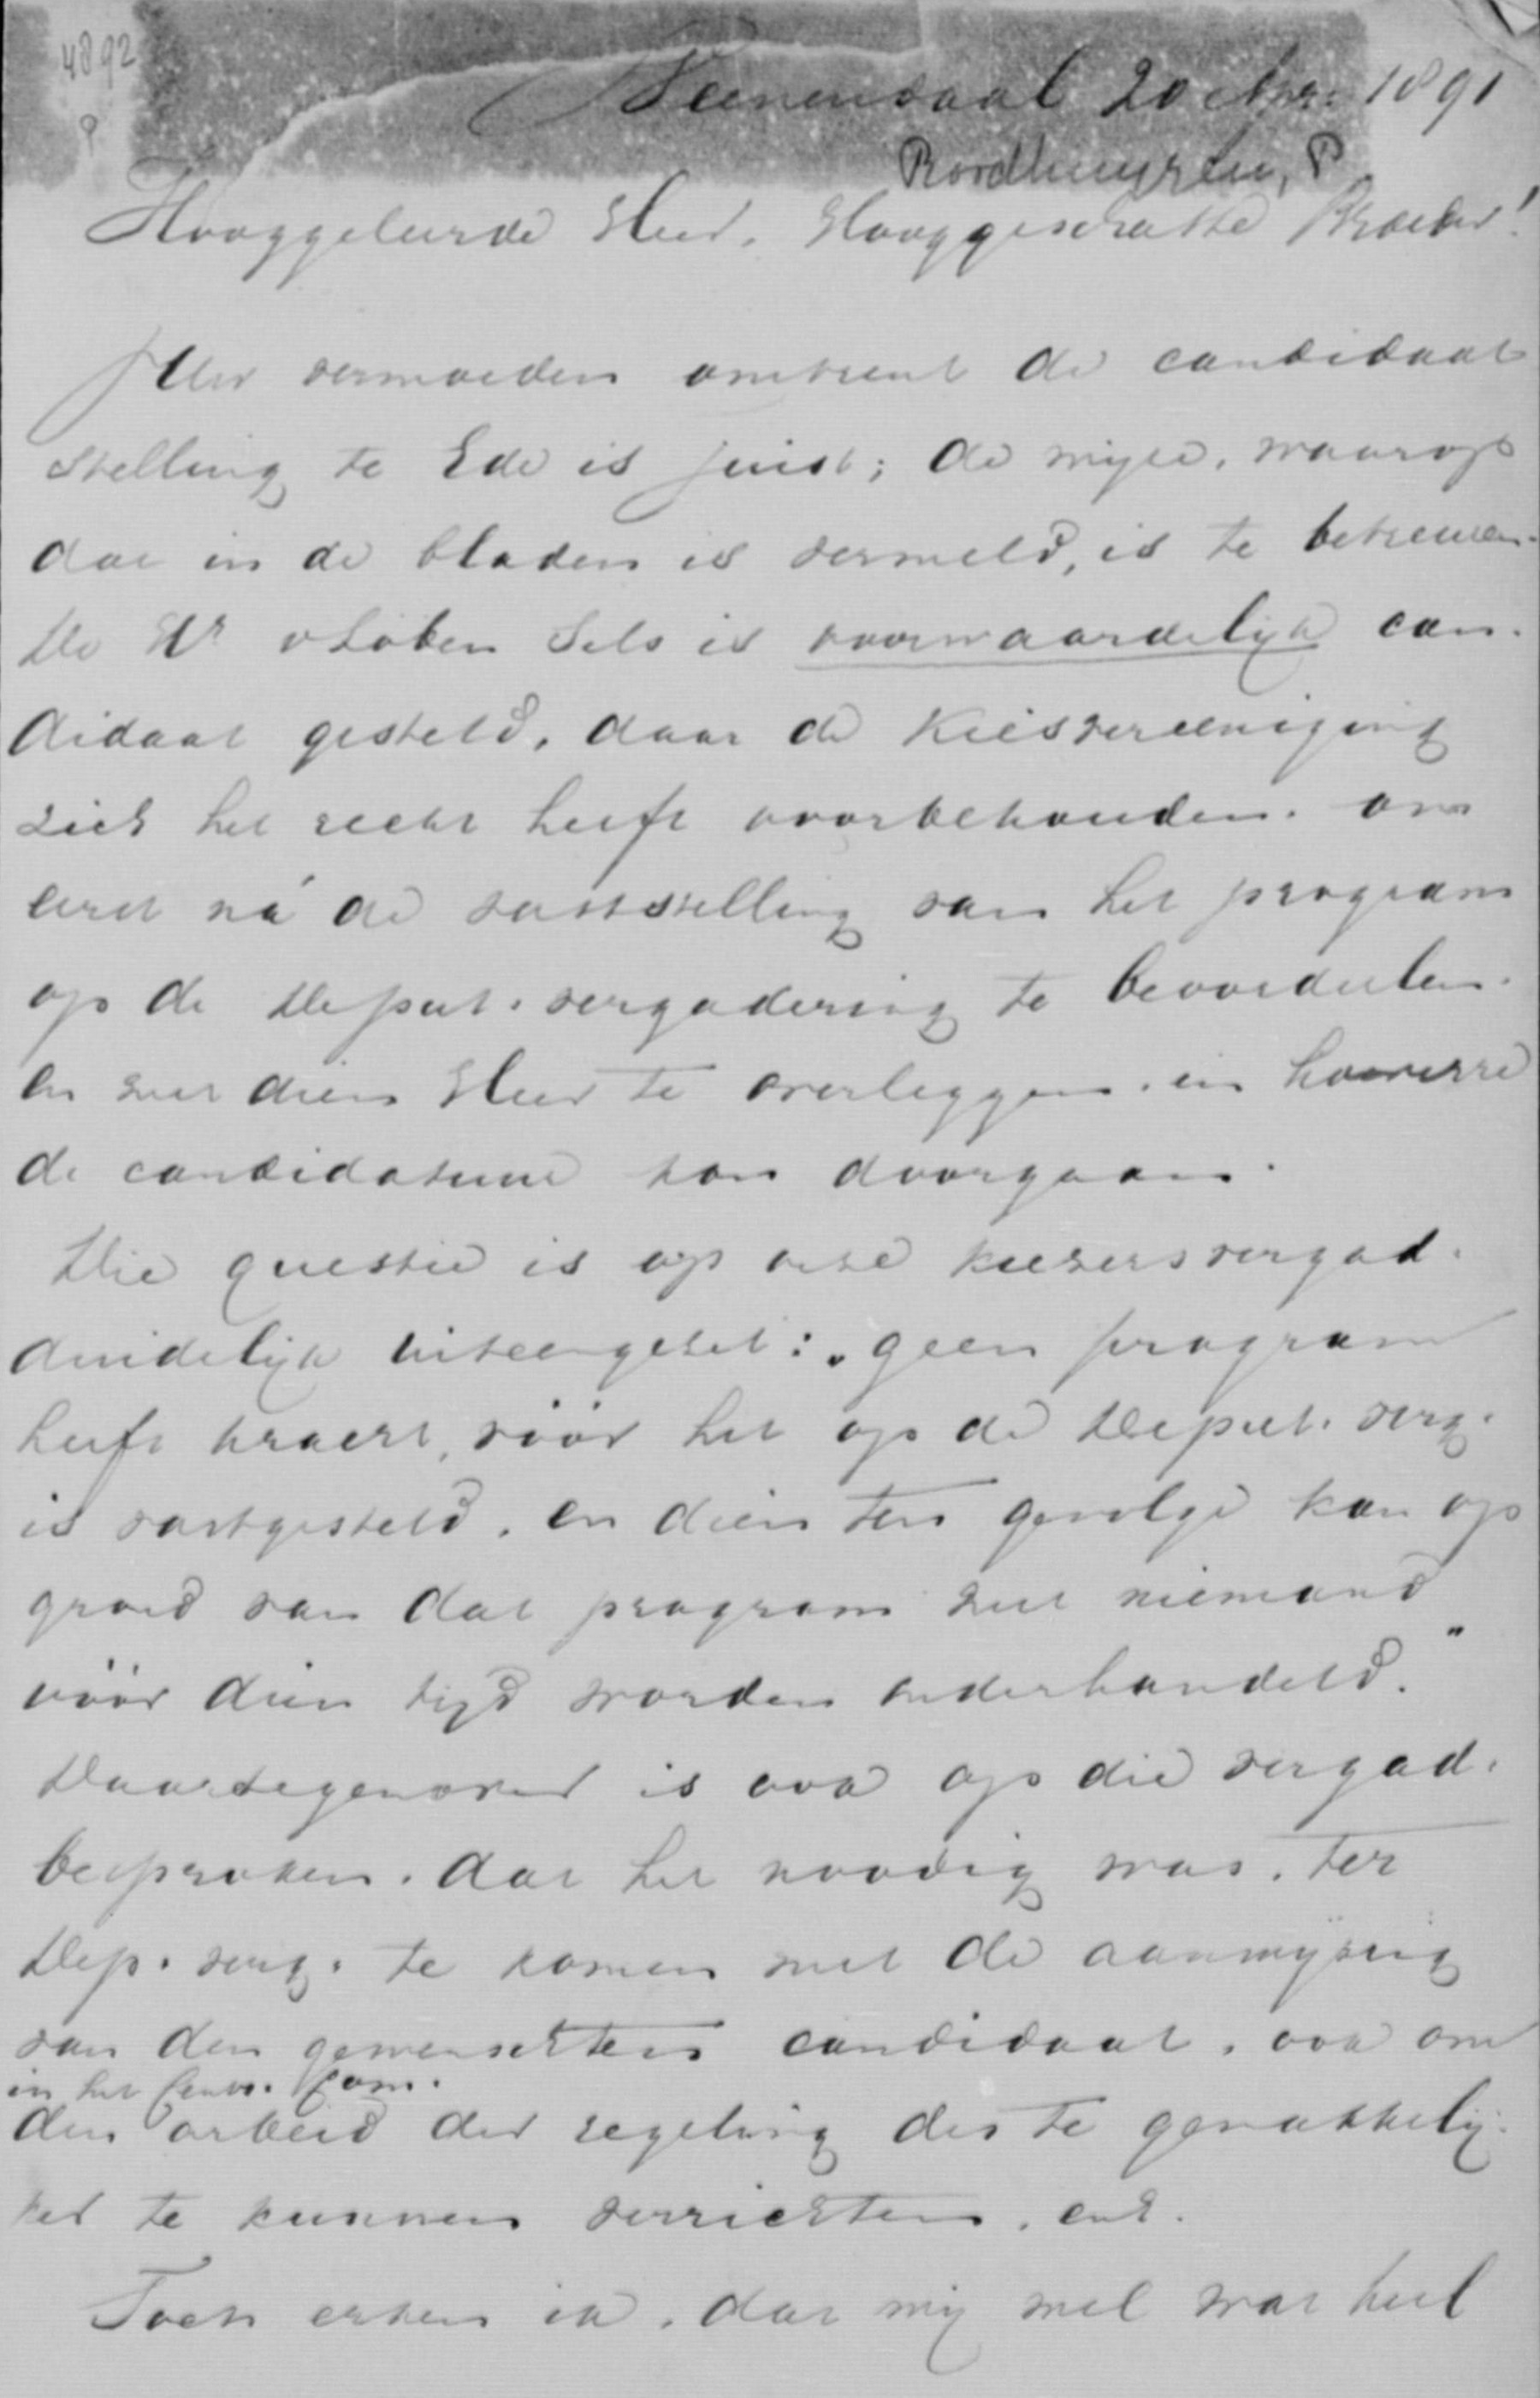 4892
P
Veenendaal 20 Apr. 1891
Hooggeleerde Heer, Hooggeschatte Broeder!
Uw vermoeden omtrent de candidaat
stelling te Ede is juist; de wijze, waarop
dat in de bladen is vermeld, is te betreuren.
De Hr v Löben Sels is voorwaardelijk can-
didaat gesteld, daar de Kiesvereeniging
zich het recht heeft voorbehouden, om
eerst ná de vaststelling van het program
op de Deput. vergadering te beoordeelen.
en met dien Heer te overleggen, in hoeverre
de candidatuur kan doorgaan.
Die questie is op onze kiezersvergad.
duidelijk uiteengezet: "geen program
heeft kracht, vóór het op de Deput. verg.
is vastgesteld, en dien ten gevolge kan op
grond van dat program met niemand
vóór dien tijd worden onderhandeld."
Daartegenover is ook op die vergad.
besproken, dat het noodig was, ter
Dep. verg. te komen met de aanwijzing
van den gewenschten candidaat, ook om
in het Centr. Com.
den arbeid der regeling des te gemakkelij-
ker te kunnen verrichten, enz.
Toch erken ik, dat mij wel wat heel